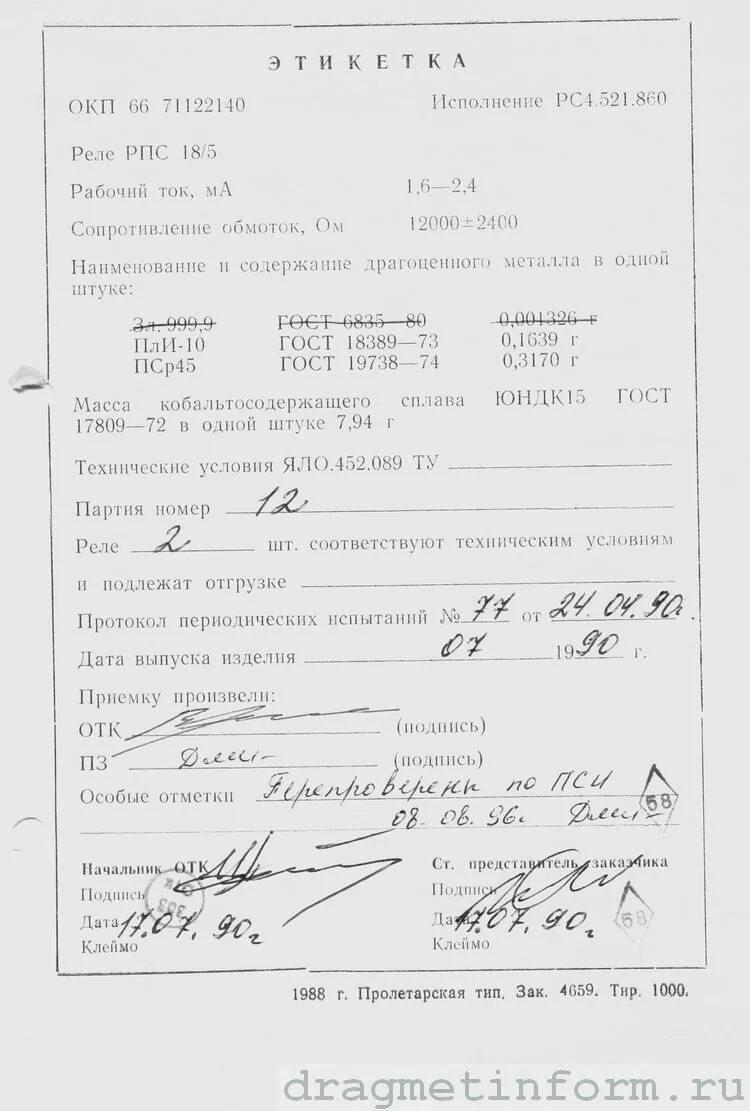 ЭТИКЕТКА
ОКП 66 71122140 Исполнение РС4.521.860
Реле РПС 18/5
Рабочий ток, мА 1,6—2,4
Сопротивление обмоток, Ом 12000±2400
Наименование и содержание драгоценного металла в одной
штуке:
Зл. 999,9 ГОСТ 6835—80 0,001326 г
ПлИ-10 ГОСТ 18389—73 0,1639 г
ПСр45 ГОСТ 19738—74 0,3170 г
Масса кобальтосодержащего сплава ЮНДК15 ГОСТ
17809—72 в одной штуке 7,94 г
Технические условия ЯЛО.452.089 ТУ
Партия номер 12
Реле 2 шт. соответствуют техническим условиям
и подлежат отгрузке
Протокол периодических испытаний № 77 от 24.04.90г.
Дата выпуска изделия 07 1990 г.
Приемку произвели:
ОТК (подпись)
ПЗ (подпись)
Особые отметки Перепроверены по ПСИ
58
08.08.96г.
Начальник ОТК Ст. представитель заказчика
Подпись Подпись
ОТК 303
Дата 17.07.90г Дата 17.07.90г
58
Клеймо Клеймо
1988 г. Пролетарская тип. Зак. 4659. Тир. 1000.
dragmetinform.ru